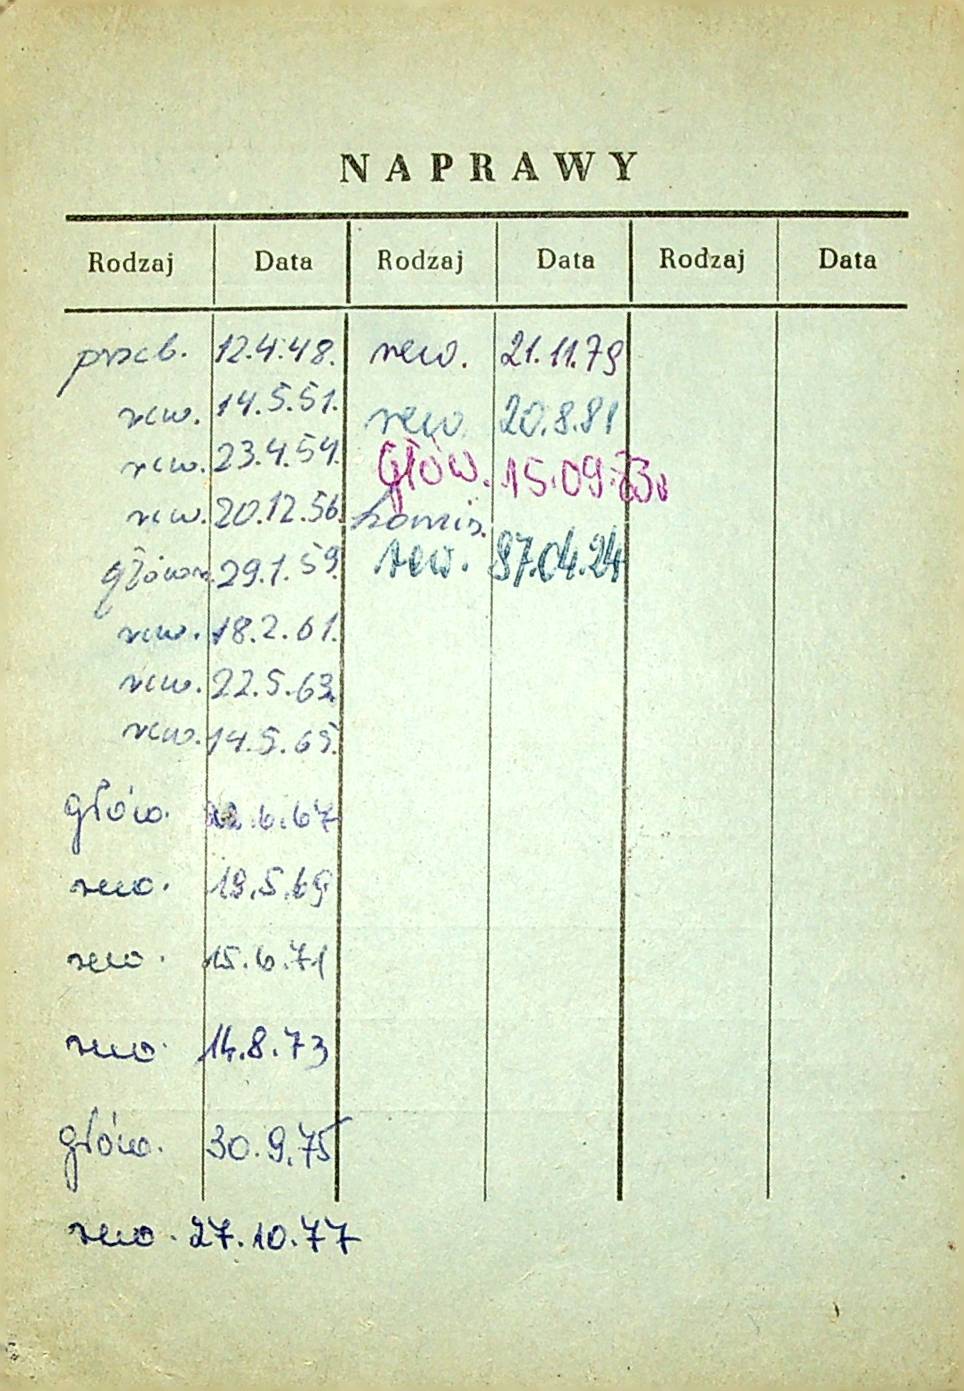 NAPRAWY
Rodzaj Data Rodzaj Data Rodzaj Data
przeb. 12.4.48. rew. 21.11.79
rew. 14.5.51. rew. 20.8.81
rew. 23.4.54. głów. 15.09.83.
rew. 20.12.56. komis.
główn. 29.1.59. rew. 87.04.24
rew. 18.2.61.
rew. 22.5.63.
rew. 14.5.65.
głów. 22.6.67
rew. 19.5.69
rew. 15.6.71
rew. 14.8.73
głów. 30.9.75
rew. 27.10.77